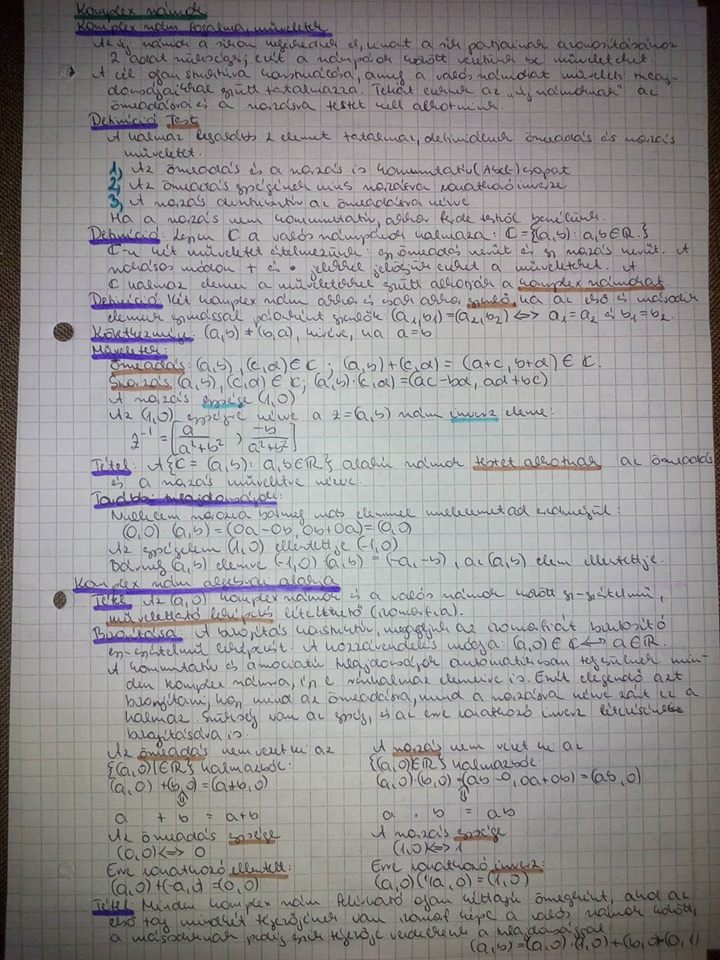 Komplex számok
Komplex szám fogalma, műveletek
Az új számok a síkon helyezkednek el, mivel a sík pontjainak azonosításához
2 adat szükséges; ezért a számpárok között vezetünk be műveleteket.
A cél olyan struktúra konstruálása, amely a valós számokat műveleti tulaj-
donságaikkal együtt tartalmazza. Tehát ezeknek az "új számoknak" az
összeadásra és a szorzásra testet kell alkotniuk.
Definíció Test
A halmaz legalább 2 elemet tartalmaz, definiálunk összeadás és szorzás
műveletet.
1, Az összeadás és a szorzás is kommutatív (Abel) csoport
2, Az összeadás egységének nincs szorzásra vonatkozó inverze
3, A szorzás disztributív az összeadásra nézve
Ha a szorzás nem kommutatív, akkor ferde testről beszélünk.
Definíció: Legyen C a valós számpárok halmaza: C={(a,b): a,b∈R.}
C-n két műveletet értelmezünk: egy összeadás nevűt és egy szorzás nevűt. A
szokásos módon + és • jelekkel jelöljük ezeket a műveleteket. A
C halmaz elemei a műveletekkel együtt alkotják a komplex számokat
Definíció Két komplex szám akkor és csak akkor egyenlő, ha az első és második
elemük egymással páronként egyenlők (a₁,b₁)=(a₂,b₂) <=> a₁=a₂ és b₁=b₂.
Következmény: (a,b) ≠ (b,a), kivéve, ha a=b
Műveletek:
Összeadás: (a,b), (c,d)∈C ; (a,b)+(c,d) = (a+c, b+d) ∈ C.
Szorzás (a,b), (c,d) ∈ C; (a,b)·(c,d)=(ac-bd, ad+bc)
A szorzás egysége (1,0)
Az (1,0) egységre nézve a z=(a,b) szám inverz eleme:
z⁻¹ = [a/a²+b² ; -b/a²+b²]
Tétel: A {C = (a,b): a,b∈R} alakú számok testet alkotnak az összeadás
és a szorzás műveletre nézve.
További tulajdonságok:
Nullelem szorozva bármely más elemmel nullelemet ad eredményül:
(0,0) (a,b) = (0a-0b, 0b+0a)=(0,0)
Az egységelem (1,0) ellentettje (-1,0)
Bármely (a,b) elemre (-1,0) (a,b) = (-a,-b), az (a,b) elem ellentettje.
Komplex szám algebrai alakja
Tétel: Az (a,0) komplex számok és a valós számok között egy-értelmű,
művelettartó leképezés létesíthető (izomorfia).
Bizonyítása A bizonyítás konstruktív, megadjuk az izomorfiát biztosító
egy-értelmű leképezést. A hozzárendelés módja: (a,0) ∈ C <-> a∈R.
A kommutatív és asszociatív megjegyzések automatikusan teljesülnek min-
den komplex számra, így e részhalmaz elemeire is. Ezért elegendő azt
bizonyítani, hogy mind az összeadásra, mind a szorzásra nézve zárt ez a
halmaz. Szükség van az egység, és az erre vonatkozó inverz létezésének
bizonyítására is.
Az összeadás nem vezet ki az
{(a,0)∈R} halmazból:
(a,0) +(b,0)=(a+b,0)
⇕
a + b = a+b
Az összeadás egysége
(0,0)<=> 0
Erre vonatkozó ellentett:
(a,0)+(-a,0)=(0,0)
A szorzás nem vezet ki az
{(a,0)∈R} halmazból
(a,0)·(b,0)=(ab-0, 0a+0b)=(ab,0)
⇕
a . b = ab
A szorzás egysége
(1,0)<=>1
Erre vonatkozó inverz:
(a,0)(1/a,0)=(1,0)
Tétel: Minden komplex szám felírható olyan kéttagú összegként, ahol az
első tag mindkét tényezőjének van izomorf képe a valós számok között,
a másodiknak pedig egyik tényezője rendelkezik a tulajdonsággal:
(a,b)=(a,0)·(1,0)+(b,0)·(0,1)